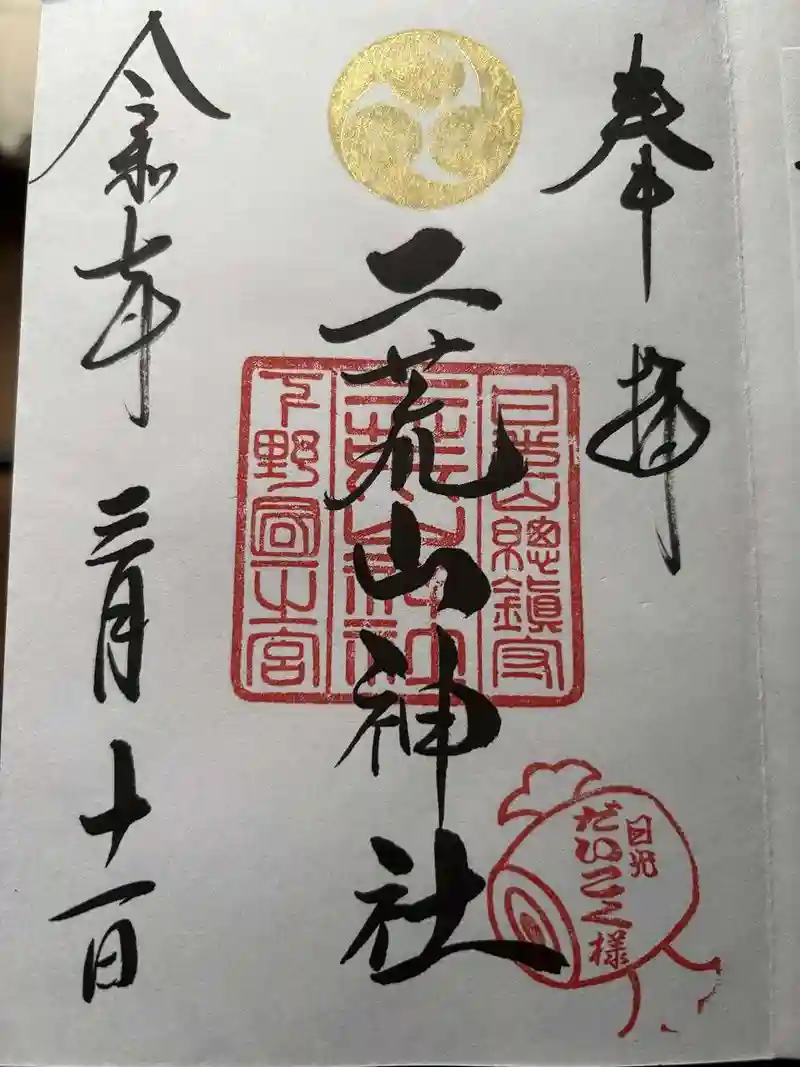 奉拝
日光山總鎮守
二荒山神社
下野國一之宮
二荒山神社
日光
だいこく様
令和七年三月十一日